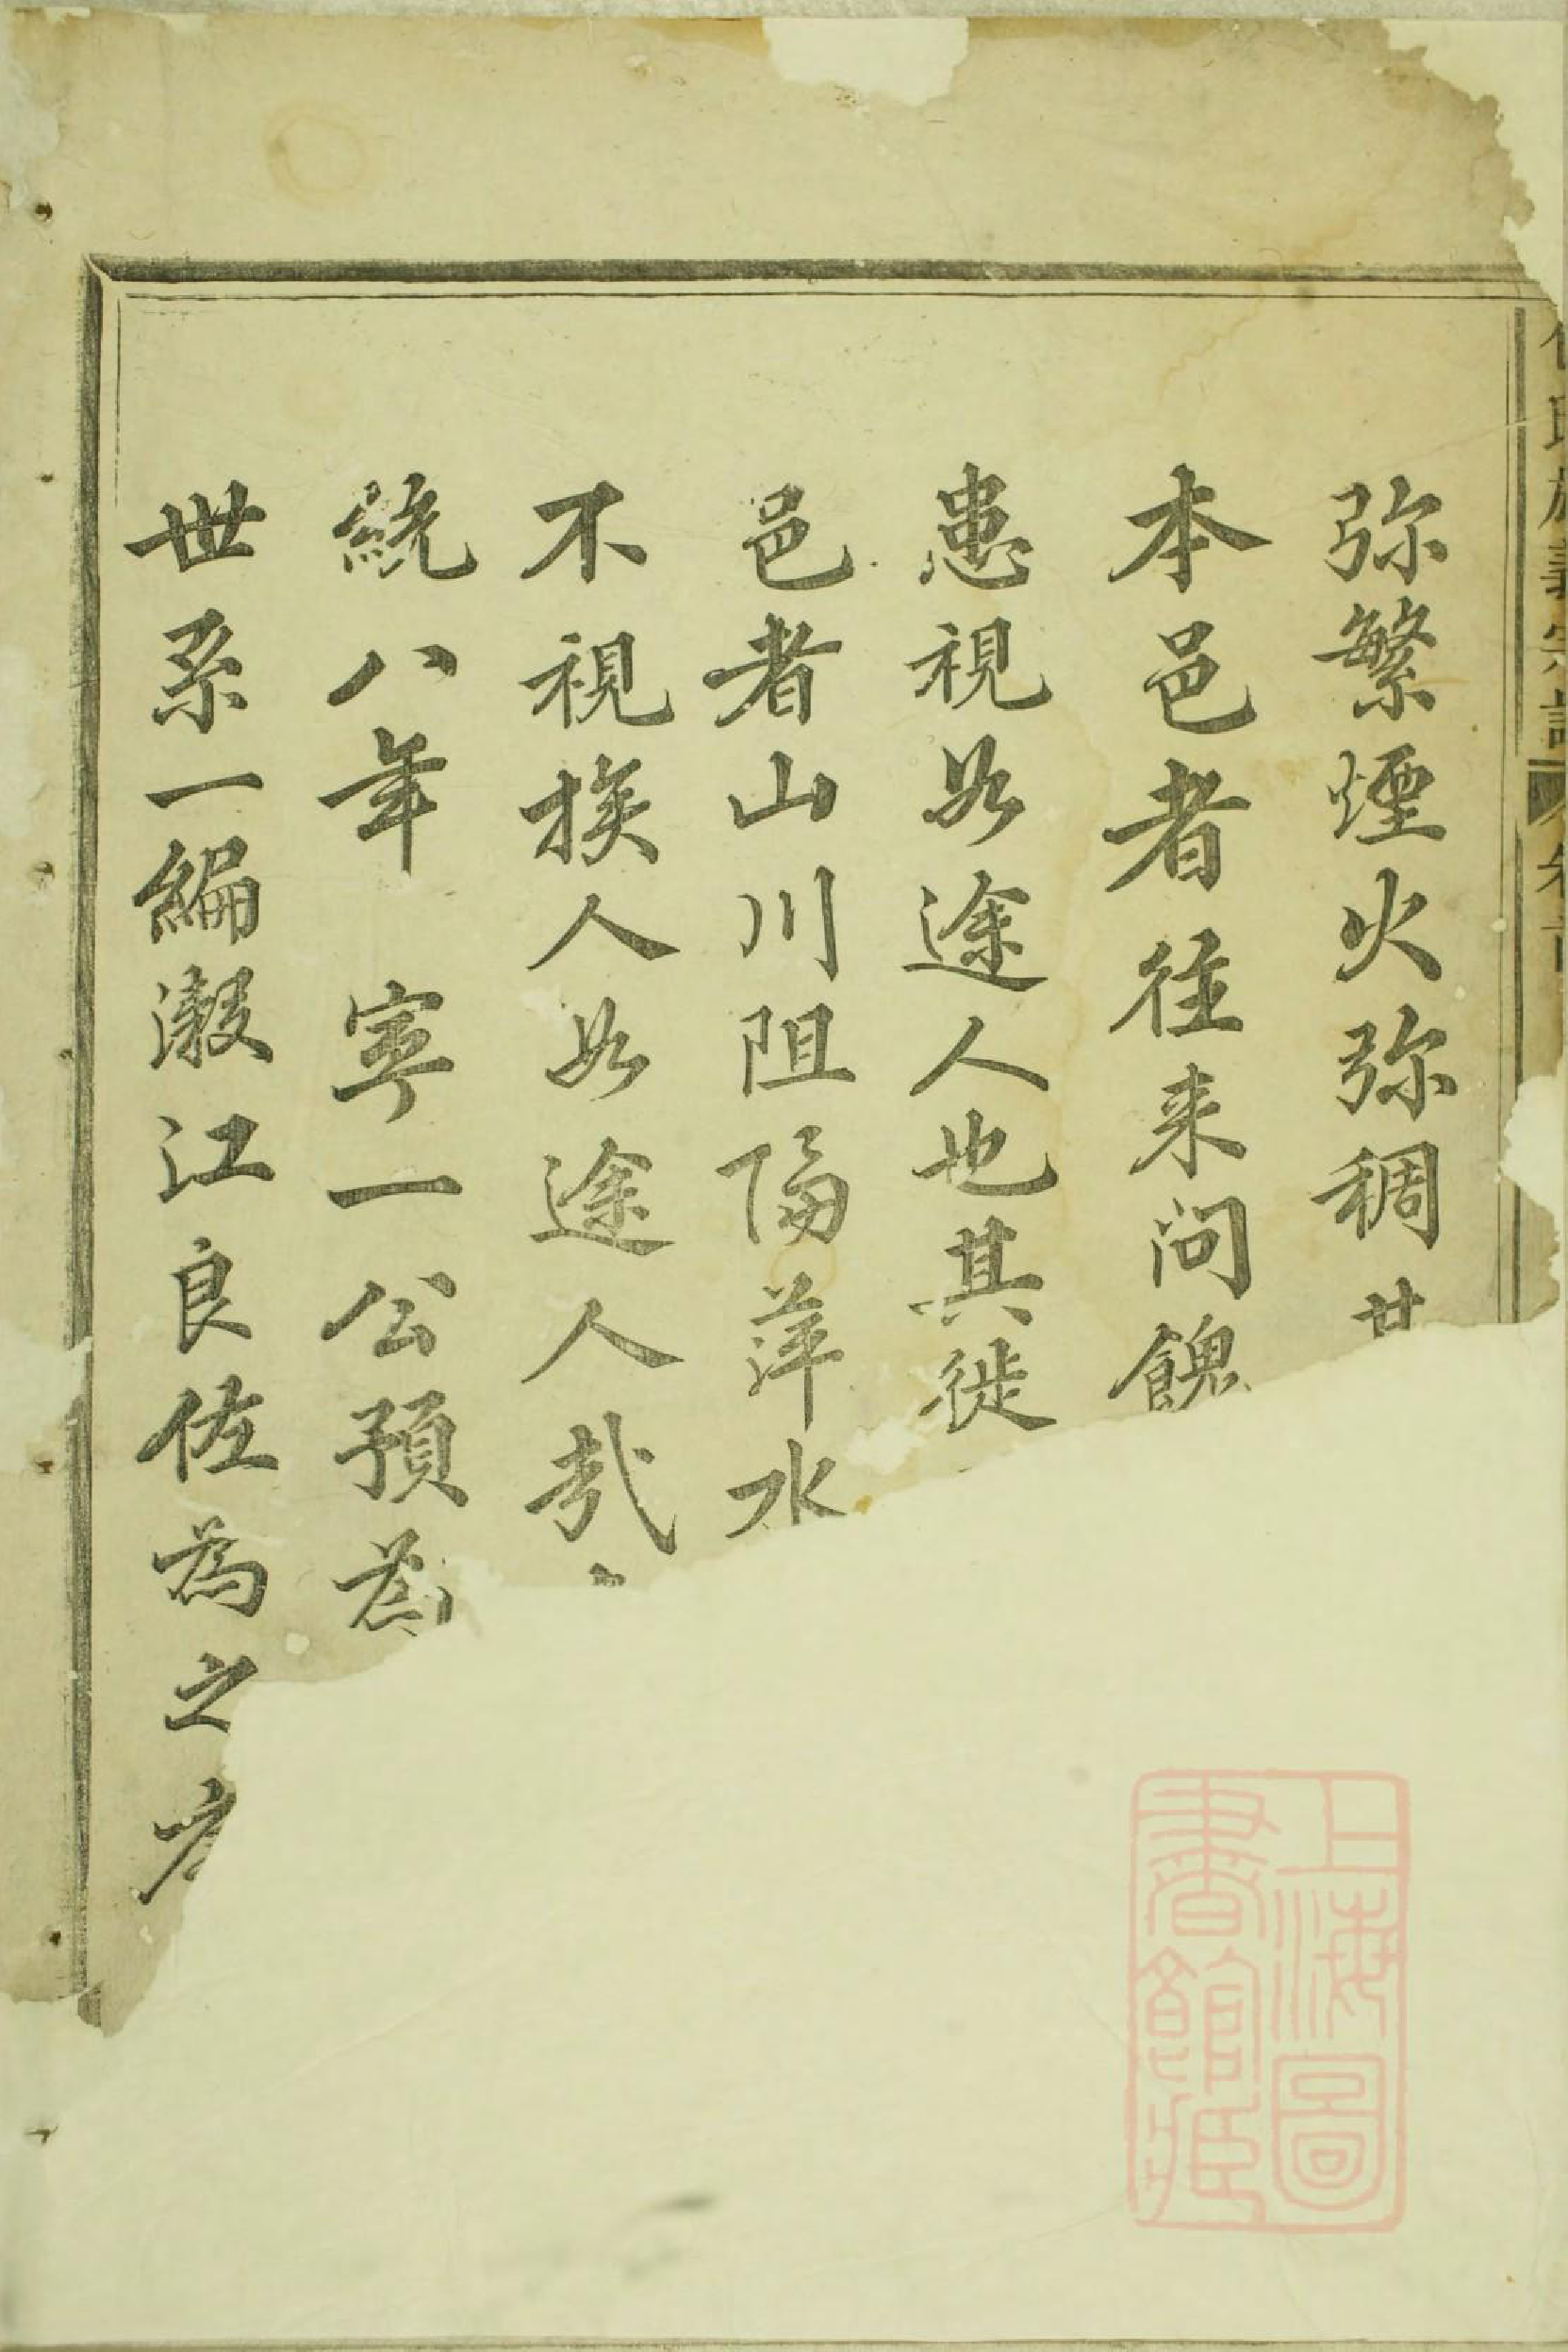 弥繁煙火弥稠
本邑者往来问餽
患視如途人也其徙
邑者山川阻隔萍水
不視挨人如途人哉
統八年 寧一公預為
世系一編澱江良佐為之
上海圖書館藏